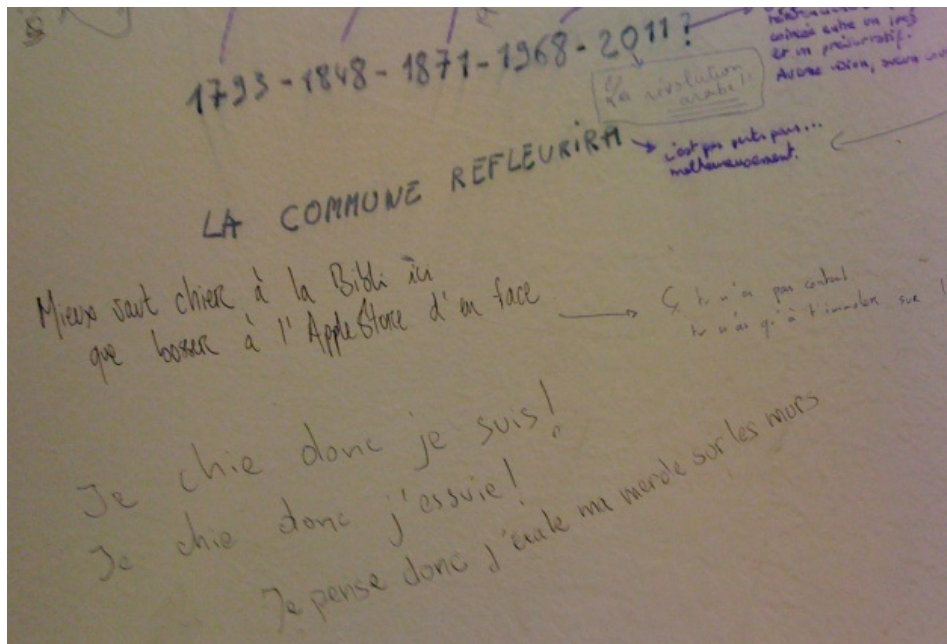 1793-1848-1871-1968-2011?
coincée entre un
et un préservatif.
Aucune vision, aucun
La révolution
arabe!
LA COMMUNE REFLEURIRA
c'est pas parti pour...
malheureusement.
Mieux vaut chier à la Bibli ici
que bosser à l'AppleStore d'en face
tu n'as qu'à t'immoler sur
Je chie donc je suis!
Je chie donc j'essuie!
Je pense donc j'étale ma merde sur les murs